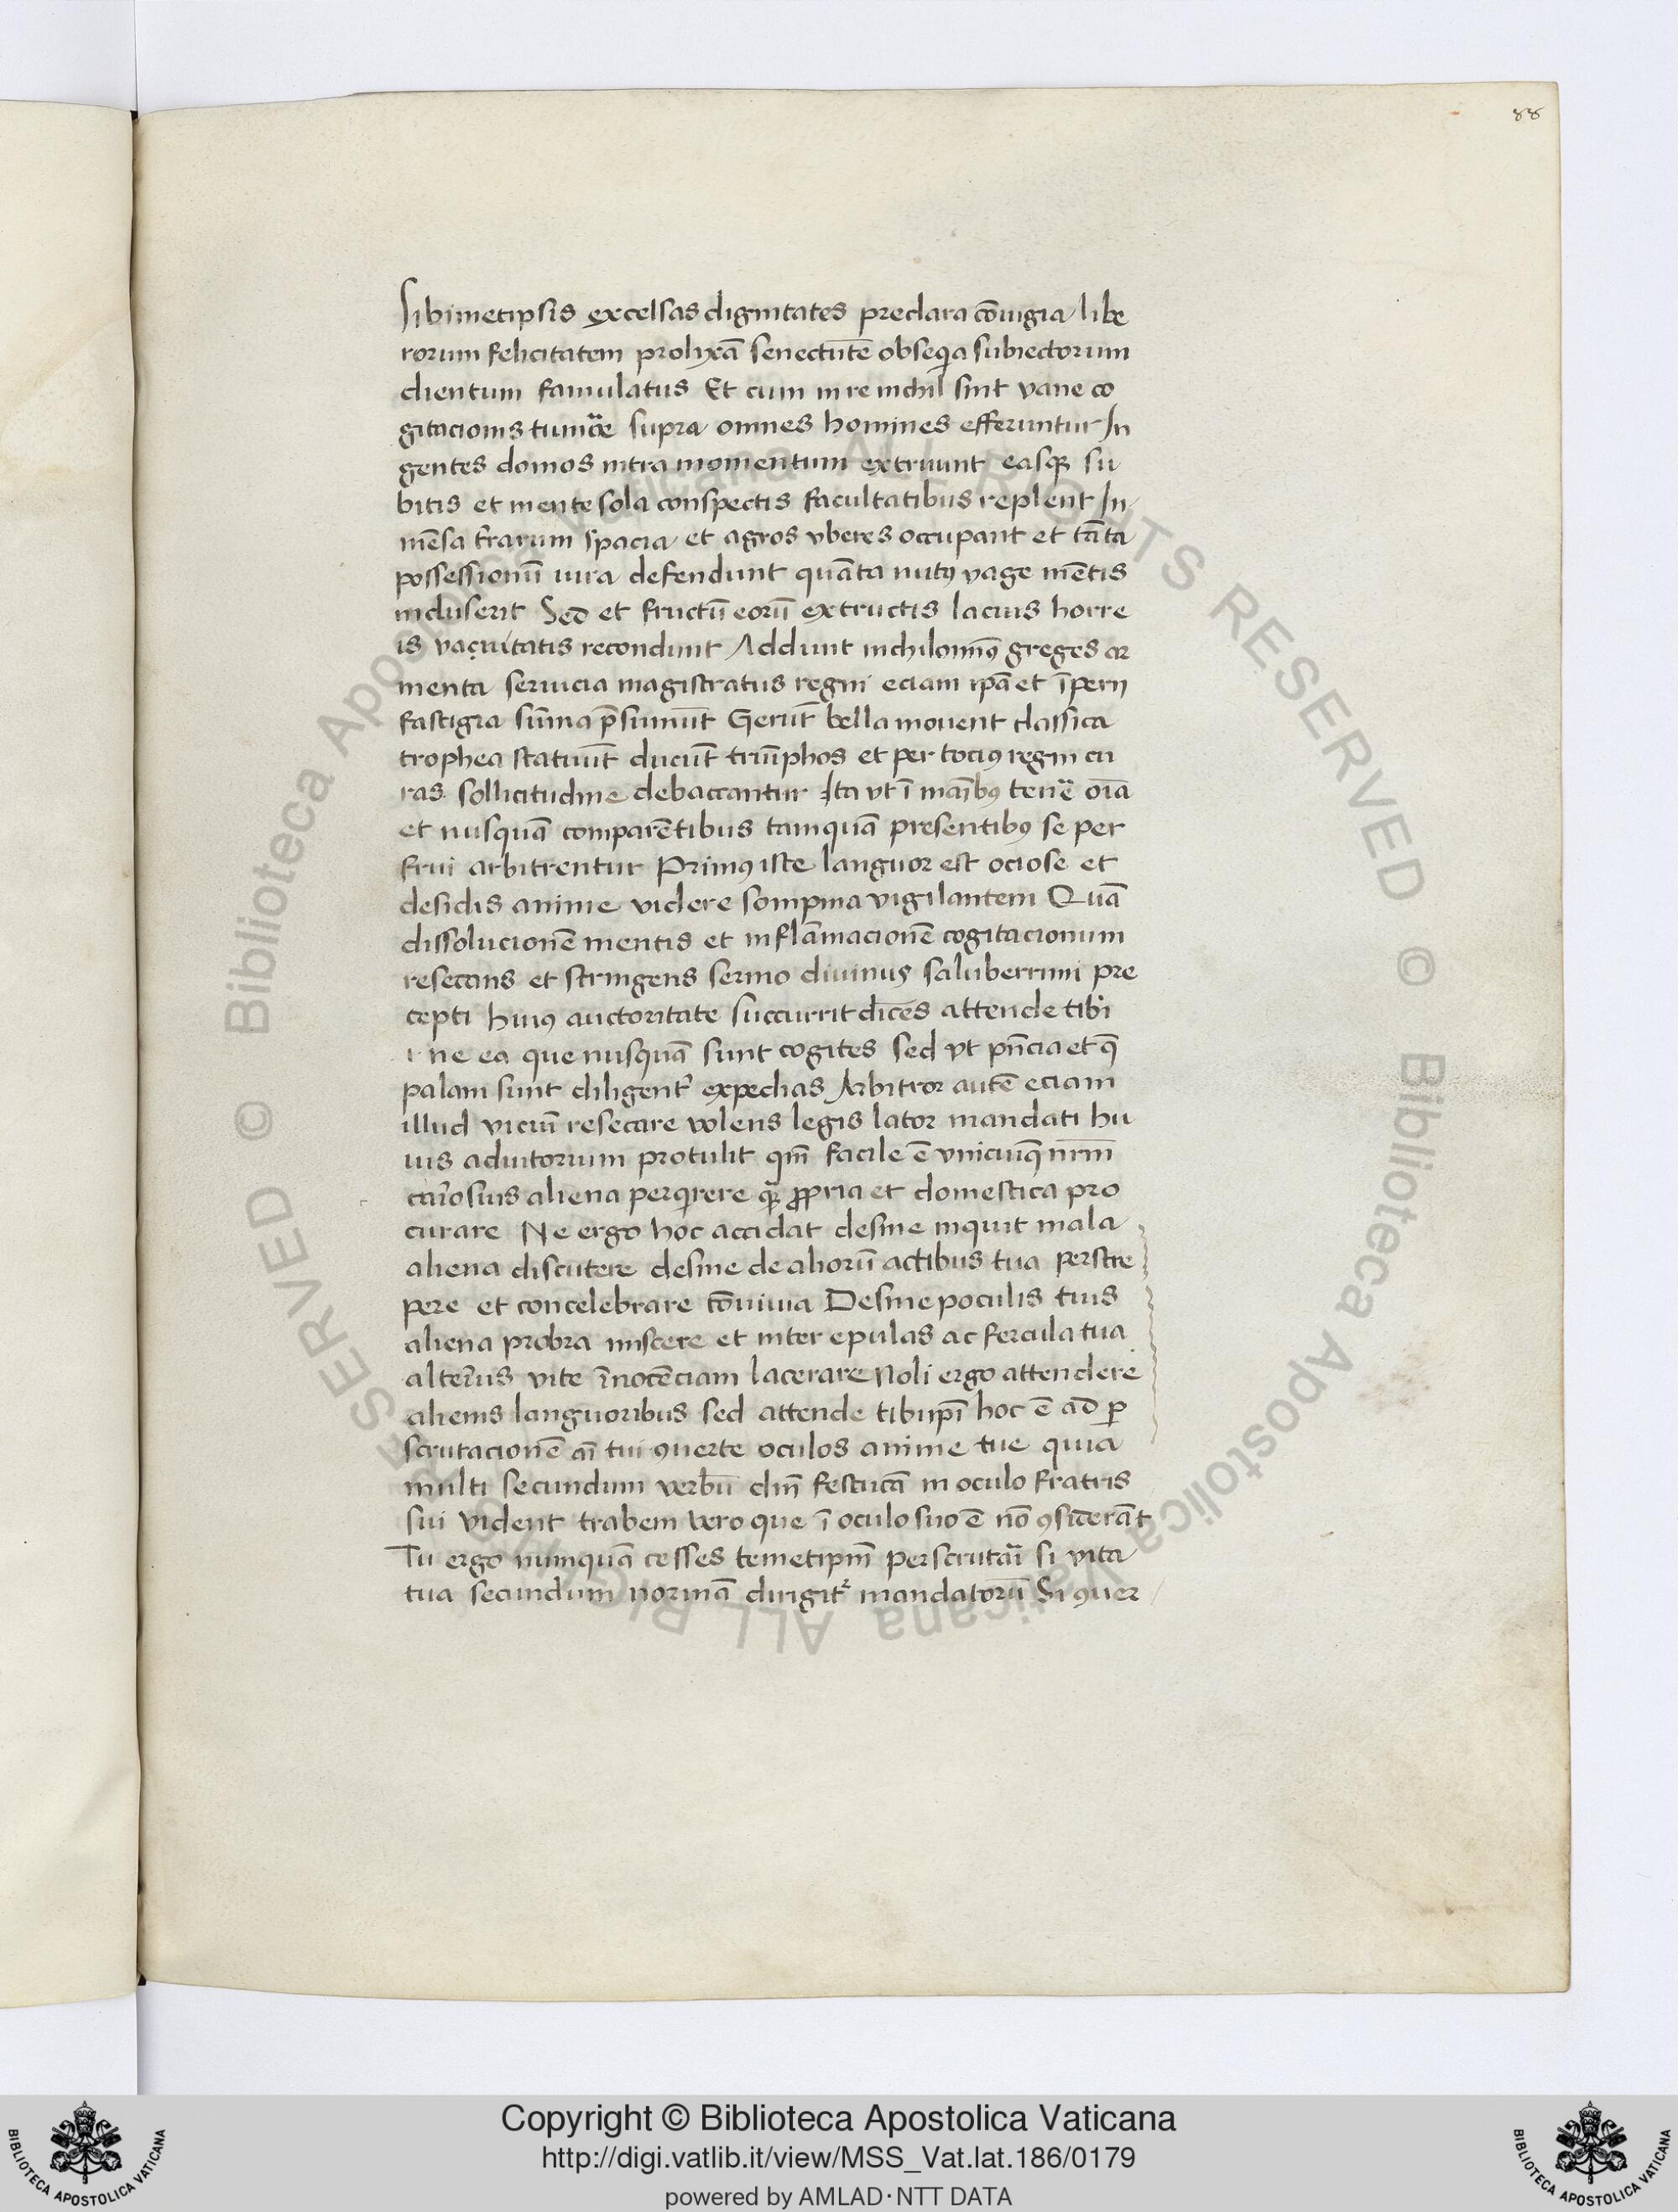 88
Sibimetipsis excelsas dignitates preclara cōiugia libe
rorum felicitatem prolixā senectutē obseqia subiectorum
clientum famulatus Et cum in re nichil sint vane co
gitacionis tumore supra omnes homines efferuntur In
gentes domos intra momentum extruunt easqȝ su
bitis et mente sola conspectis facultatibus replent In
mēsa trarum spacia et agros vberes occupant et tāta
possessionū iura defendunt quāta nutꝰ vage mētis
incluserit Sed et fructū eorū extructis lacius horre
is vacuitatis recondunt Addunt nichilominꝰ greges ar
menta seruicia magistratus regni eciam ipā et īperij
fastigia sūma p̄sumūt Gerūt bella mouent classica
trophea statuūt ducūt triūphos et per tociꝰ regni cu
ras sollicitudine debaccantur Ita vt ī manibꝰ tenē oīa
et nusquā comparētibus tamquā presentibꝰ se per
frui arbitrentur Primꝰ iste languor est ociose et
desidis anime videre sompnia vigilantem Quā
dissolucionē mentis et inflāmacionē cogitacionum
resecans et stringens sermo diuinus saluberrimi pre
cepti huiꝰ auctoritate succurrit dices attende tibi
ne ea que nusquā sunt cogites sed vt pn̄cia et q̄
palam sunt diligent expedias Arbitror autē eciam
illud viciū resecare volens legis lator mandati hu
ius adiutorium protulit qm̄ facile ē vnicuiq̄ nr̄m
curiosius aliena perqirere qȝ ꝓpria et domestica pro
curare Ne ergo hoc accidat desine inquit mala
aliena discutere desine de aliorū actibus tua perstre
pere et concelebrare cōuiuia Desine poculis tuis
aliena probra miscere et inter epulas ac fercula tua
alterius vite īnocēciam lacerare Noli ergo attendere
alienis languoribus sed attende tibi ipī hoc ē ad ꝑ
scrutacionē aī tui ꝯuerte oculos anime tue quia
multi secundum verbū dm̄ festucā in oculo fratris
sui vident trabem vero que ī oculo suo ē nō ꝯsiderāt
Tu ergo numquā cesses temetipm̄ perscrutāi si vita
tua secundum normā dirigit mandatorū Si ꝯuer
Copyright © Biblioteca Apostolica Vaticana
http://digi.vatlib.it/view/MSS_Vat.lat.186/0179
powered by AMLAD·NTT DATA
BIBLIOTECA APOSTOLICA VATICANA
BIBLIOTECA APOSTOLICA VATICANA
© Biblioteca Apostolica Vaticana ALL RIGHTS RESERVED
© Biblioteca Apostolica Vaticana ALL RIGHTS RESERVED